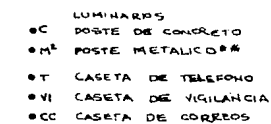 LUMINARIOS
•C POSTE DE CONCRETO
•M² POSTE METALICO**
•T CASETA DE TELEFONO
•VI CASETA DE VIGILANCIA
•CC CASETA DE CORREOS